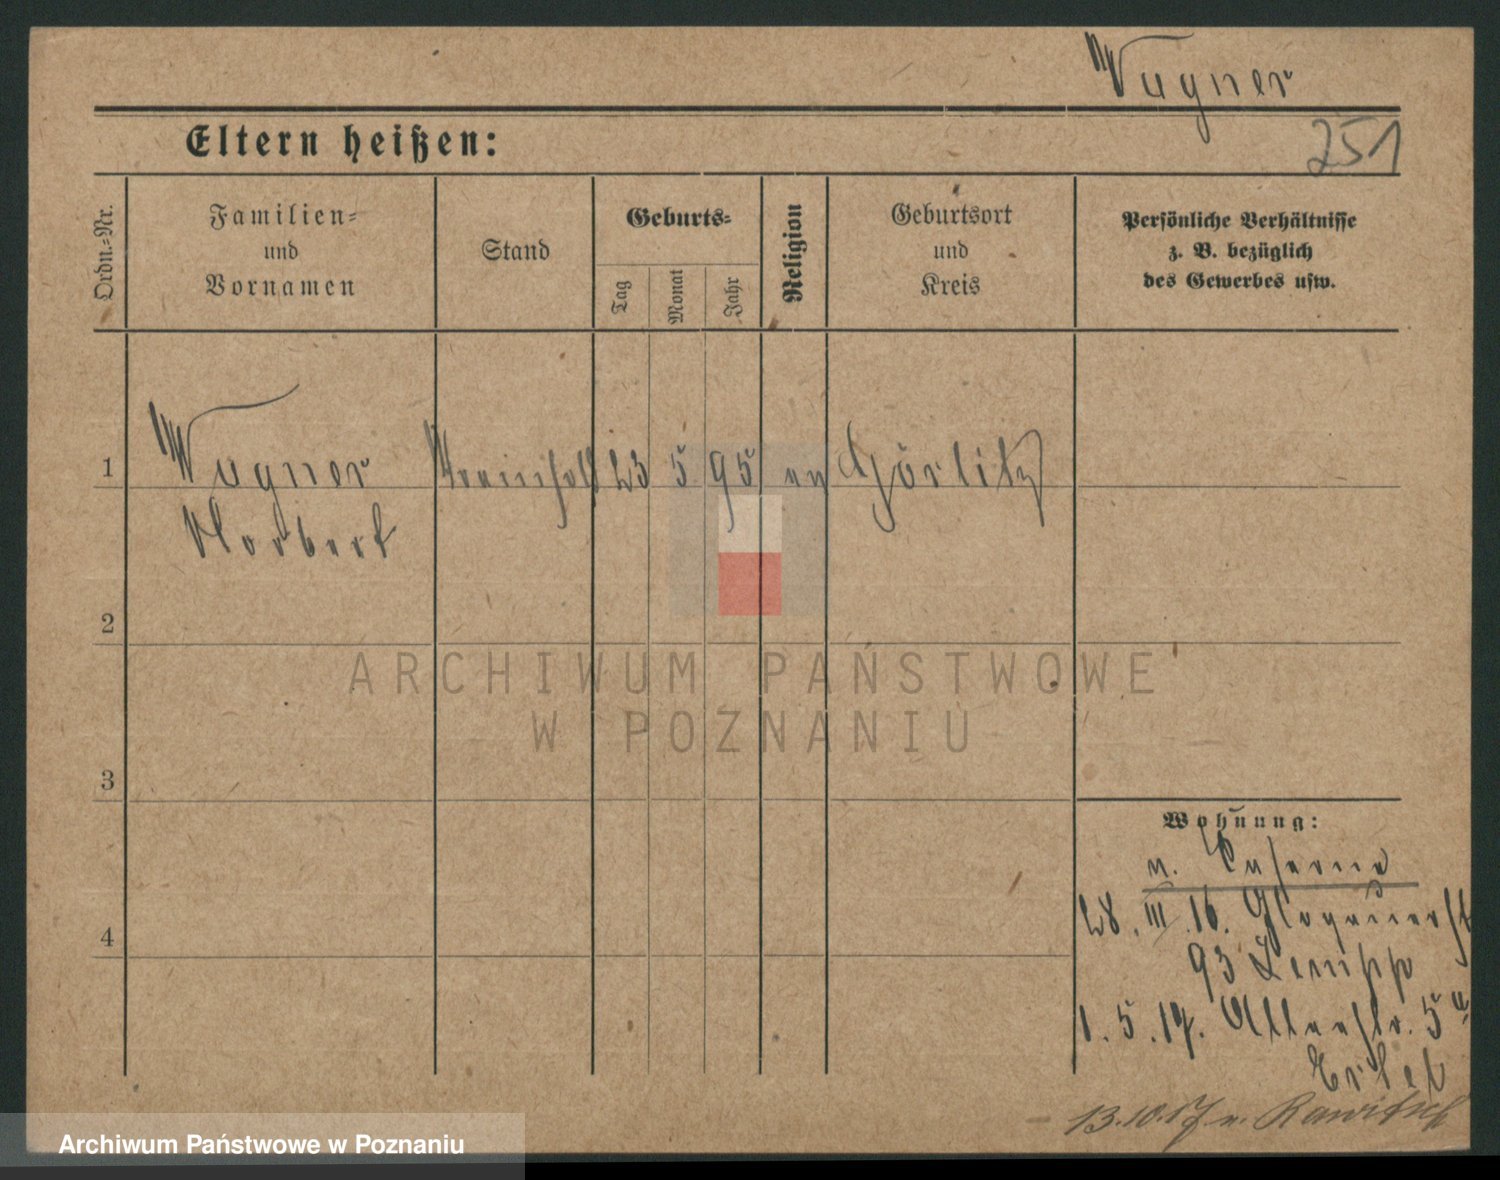 Wagner
251
Eltern heißen:
Ordn.-Nr.
Familien-
und
Vornamen
Stand
Geburts-
Tag
Monat
Jahr
Religion
Geburtsort
und
Kreis
Persönliche Verhältnisse
z. B. bezüglich
des Gewerbes usw.
1
Wagner 23 5 95 ev Görlitz
Norbert
2
3
4
Wohnung:
n. Caserne
28. III. 16. Glogauerst
93
1. 5. 17. 5
13.10.17 n. Rawitsch
ARCHIWUM PAŃSTWOWE
W POZNANIU
Archiwum Państwowe w Poznaniu